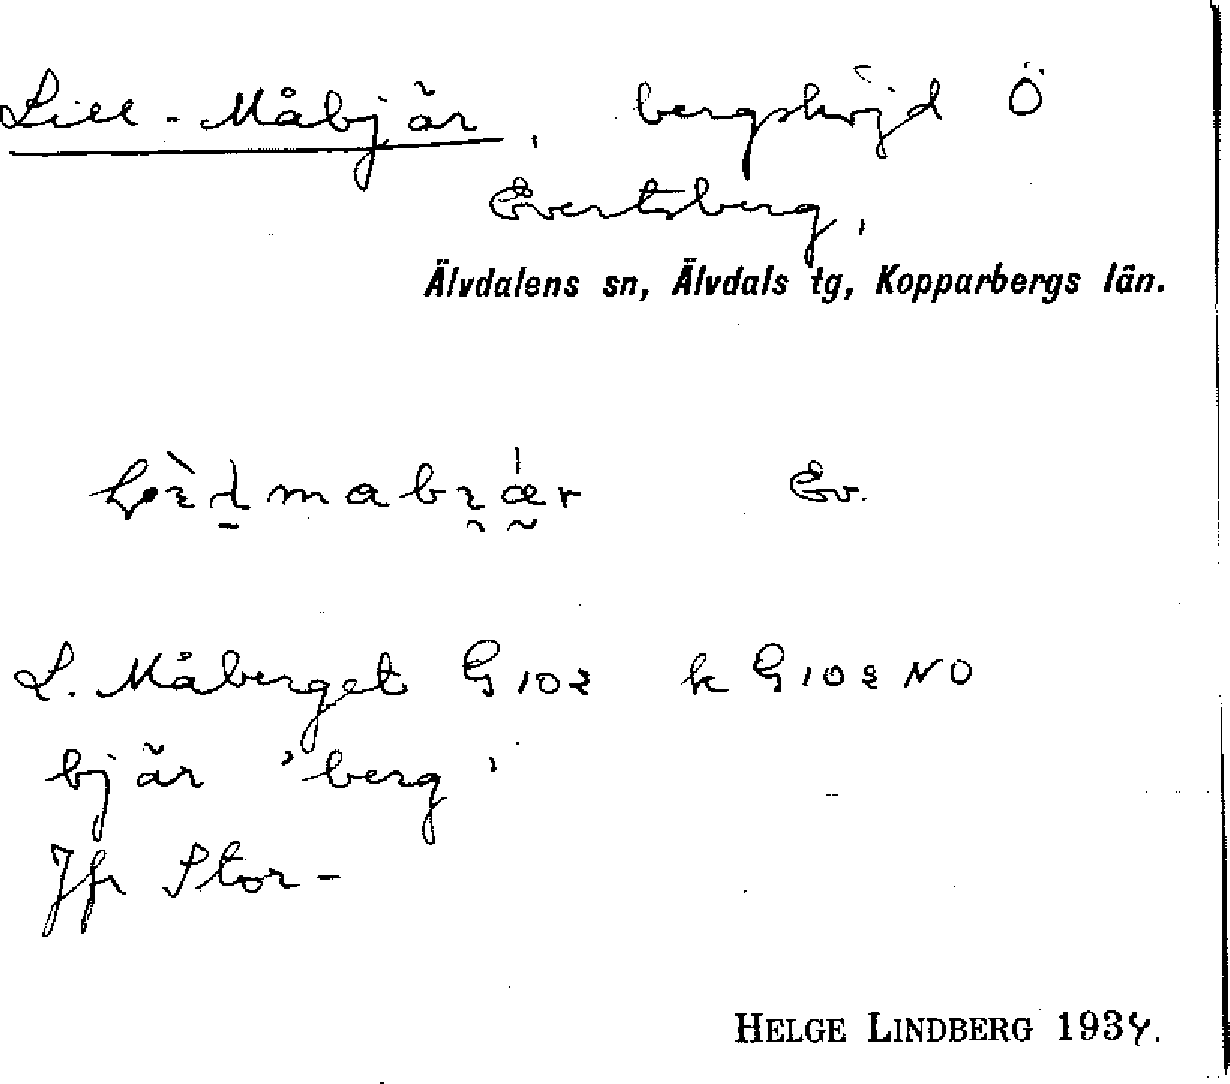 Lill-Måbjär, bergshöjd Ö
Evertsberg,
Älvdalens sn, Älvdals tg, Kopparbergs län.
Ev.
L. Måberget G102 k G102 NO
bjär 'berg'
Jfr Stor-
HELGE LINDBERG 1934.